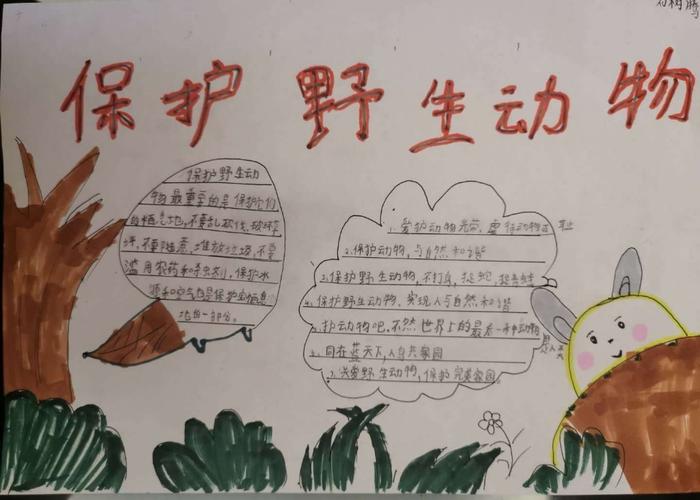 树腾
保护野生动物
保护野生动
物最重要的是保护它们
的栖息地,不要乱砍伐,破坏
坏,不要随意,堆放垃圾,不要
滥用农药和杀虫剂,保护水
源和空气也是保护
地的一部分。
1.爱护动物光荣,虐待动物
2.保护动物,与自然和谐
3.保护野生动物,不打鸟,捉蛇,捉青蛙
4.保护野生动物,实现人与自然和谐
护动物吧,不然世界上的最后一种动物
同在蓝天下,人鸟共家园
7.关爱野生动物,保护完美家园。